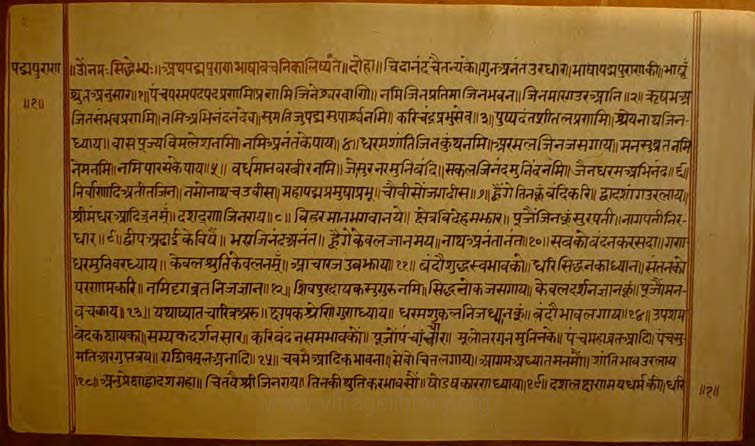 पद्मपुराण
॥१॥
॥ओं नमः सिद्धेभ्यः॥ अथ पद्मपुराण भाषा बचनिका लिष्यते॥ दोहा॥ चिदानंद चैतन्य के॥ गुन अनंत उरधार॥ भाषा पद्मपुराण की॥ भाषूं
श्रुत अनुसार॥१॥ पंच परमपद पद प्रणमि॥ प्रणमि जिनेश्वर वाणि॥ नमि जिन प्रतिमा जिन भवन॥ जिन मारग उर आनि॥२॥ ऋषभ अ
जित संभव प्रणमि॥ नमि अभिनंदन देव॥ सुमति जु पद्म सुपार्श्व नमि॥ करि चंद्र प्रभु सेव॥३॥ पुष्पदंत शीतल प्रणमि॥ श्रेयनाथ जिन
ध्याय॥ वासपूज्य विमलेश नमि॥ नमि अनंत के पाय॥४॥ धरम शांति जिन कुंथ नमि॥ अर मल जिन जस गाय॥ मनसुव्रत नमि
नेम नमि॥ नमि पारस के पाय॥५॥ वर्धमान वर वीर नमि॥ जे सुर नर मुनि बंदि॥ सकल जिनंद मुनिंद नमि॥ जैन धरम अभिनंद॥६॥
निर्वाणादि अतीत जिन॥ नमो नाथ चउवीस॥ महापद्म प्रमुषा प्रभू॥ चौवीसों जगदीस॥७॥ हैंगे तिनकूं बंदि करि॥ द्वादशांग उर लाय॥
श्रीमंधर आदिज नमूं॥ दश दूण जिनराय॥८॥ बिहरमान भगवान ये॥ क्षेत्र विदेह मझार॥ पूजें जिनकूं सुरपती॥ नागपती निर
धार॥९॥ द्वीप अढाई के विषैं॥ भए जिनंद अनंत॥ हैंगे केवल ज्ञानमय॥ नाथ अनंतानंत॥१०॥ सबको बंदन कर सदा॥ गण
धर मुनिवर ध्याय॥ केवल श्रुति केवल नमूं॥ आचारज उवझाय॥११॥ बंदौ शुद्ध स्वभाव को॥ धरि सिद्धन का ध्यान॥ संतन को
परणाम करि॥ नमि दृग व्रत निज ज्ञान॥१२॥ शिवपुर दायक सुगुरु नमि॥ सिद्ध लोक जस गाय॥ केवल दर्शन ज्ञान कूं॥ पूजों मन
वच काय॥१३॥ यथाख्यात चारित्र अरु॥ क्षपक श्रेणि गुण ध्याय॥ धरम शुकल निज ध्यान कूं॥ बंदौ भाव लगाय॥१४॥ उपशम
बेदक क्षायका॥ सम्यक दर्शन सार॥ करि बंदन समभाव को॥ पूजों पंचाचार॥ मूलोतर गुन मुनिन के॥ पंच महाव्रत आदि॥ पंच सु
मति अर गुप्त त्रय॥ ए शिव मूल अनादि॥१५॥ अनादिक भावना॥ सेवों चित लगाय॥ आगम अध्यातम नमों॥ शांति भाव उर लाय
॥१८॥ अनुप्रेक्षा द्वादश महा॥ चितवै श्री जिनराय॥ तिनकी थुति कर भाव सौं॥ षोडष कारण ध्याय॥१९॥ दश लक्षणमय धर्म की॥ धरि
॥१॥